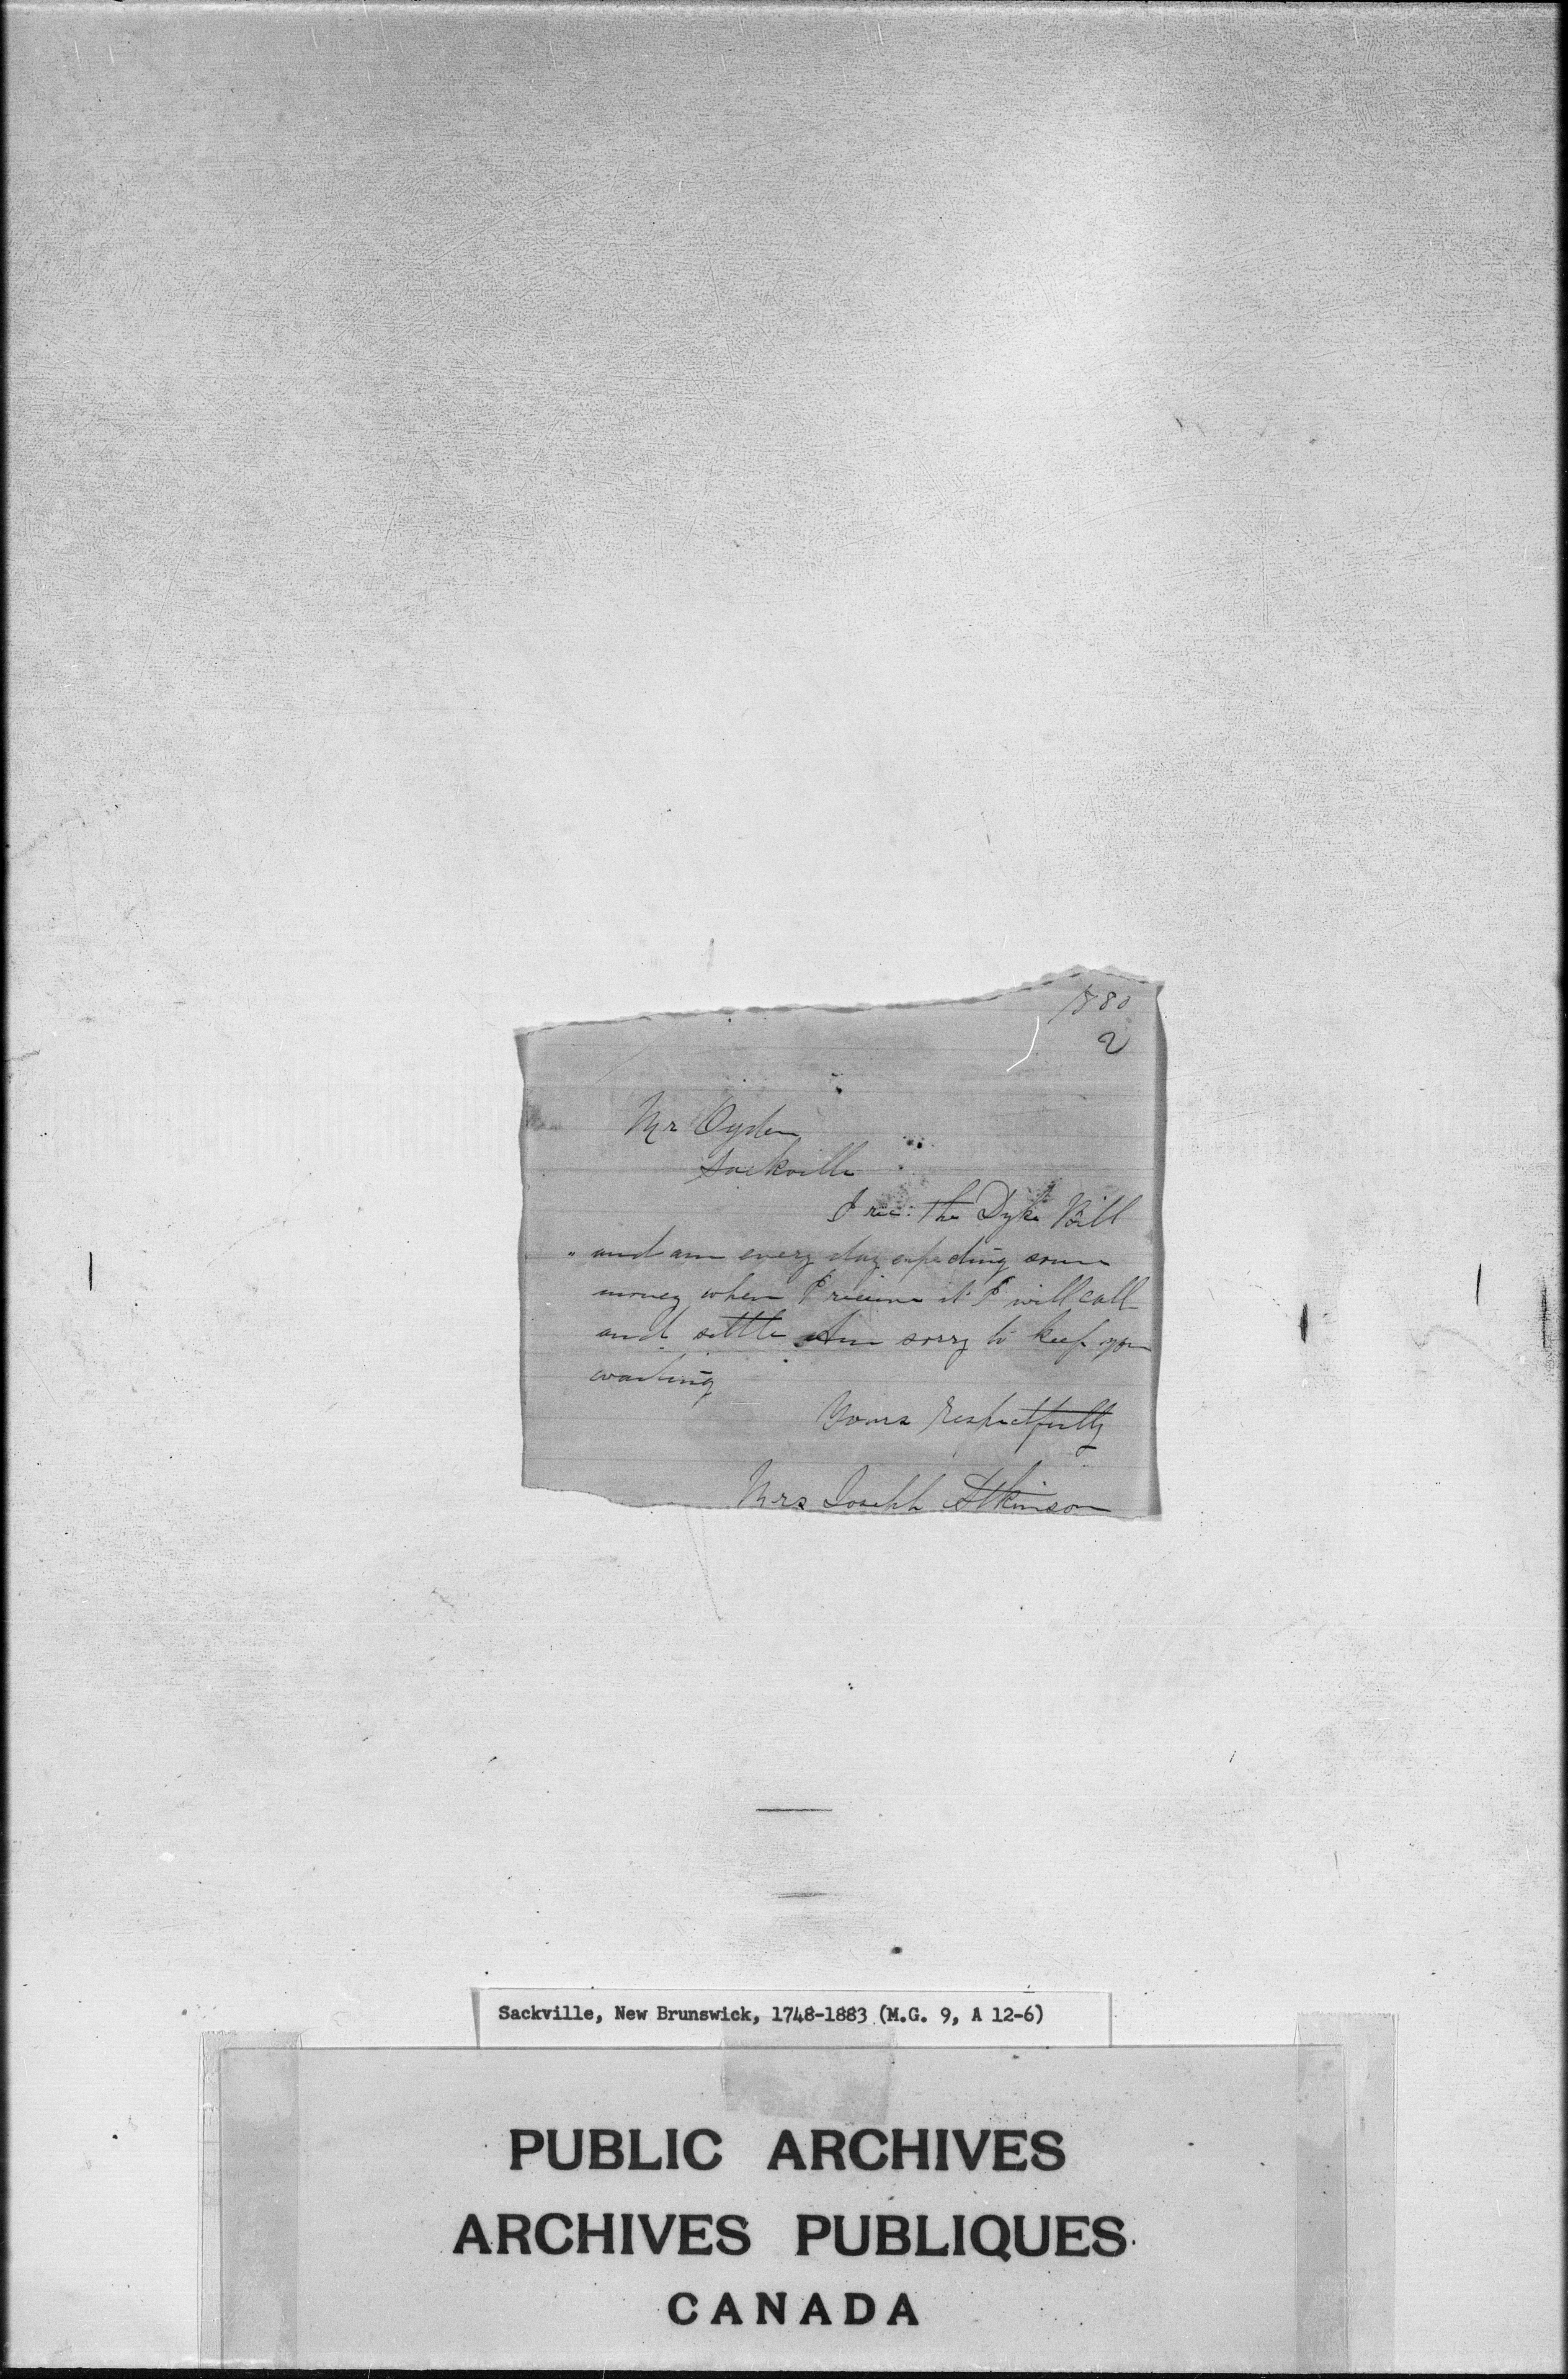 1880
2
Mr Ogden
Sackville
I rec: the Dyke Bill
and am every day expecting some
money when I receive it I will call
and settle Am sorry to keep you
waiting
Yours Respectfully
Mrs Joseph Atkinson
Sackville, New Brunswick, 1748-1883 (M.G. 9, A 12-6)
PUBLIC ARCHIVES
ARCHIVES PUBLIQUES
CANADA